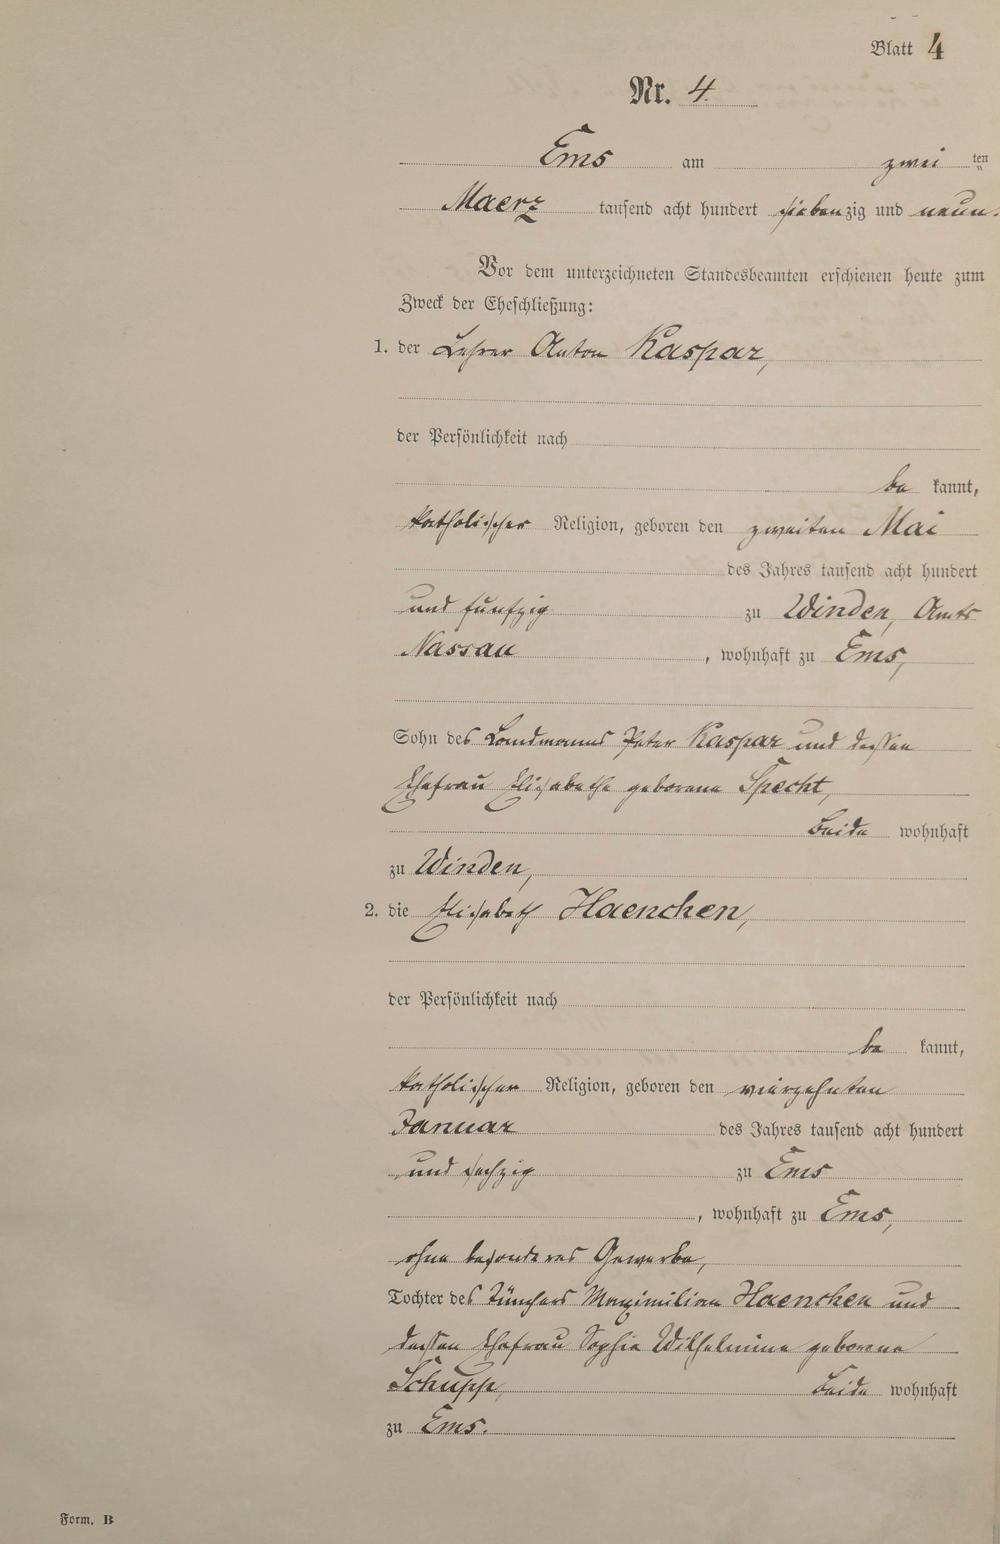 Blatt 4
Nr. 4.
Ems am zwei ten
Maerz tausend acht hundert siebenzig und neun.
Vor dem unterzeichneten Standesbeamten erschienen heute zum
Zweck der Eheschließung:
1. der Lehrer Anton Kaspar,
der Persönlichkeit nach
be kannt,
katholischer Religion, geboren den zweiten Mai
des Jahres tausend acht hundert
und funfzig zu Winden, Amts
Nassau, wohnhaft zu Ems,
Sohn des Landmanns Peter Kaspar und dessen
Ehefrau Elisabethe geborene Specht,
beide wohnhaft
zu Winden,
2. die Elisabeth Haenchen,
der Persönlichkeit nach
be kannt,
katholischer Religion, geboren den vierzehnten
Januar des Jahres tausend acht hundert
und sechzig zu Ems
, wohnhaft zu Ems,
ohne besonderes Gewerbe,
Tochter des Tünchers Maximilian Haenchen und
dessen Ehefrau Sophie Wilhelmine geborene
Schupp, beide wohnhaft
zu Ems.
Form. B